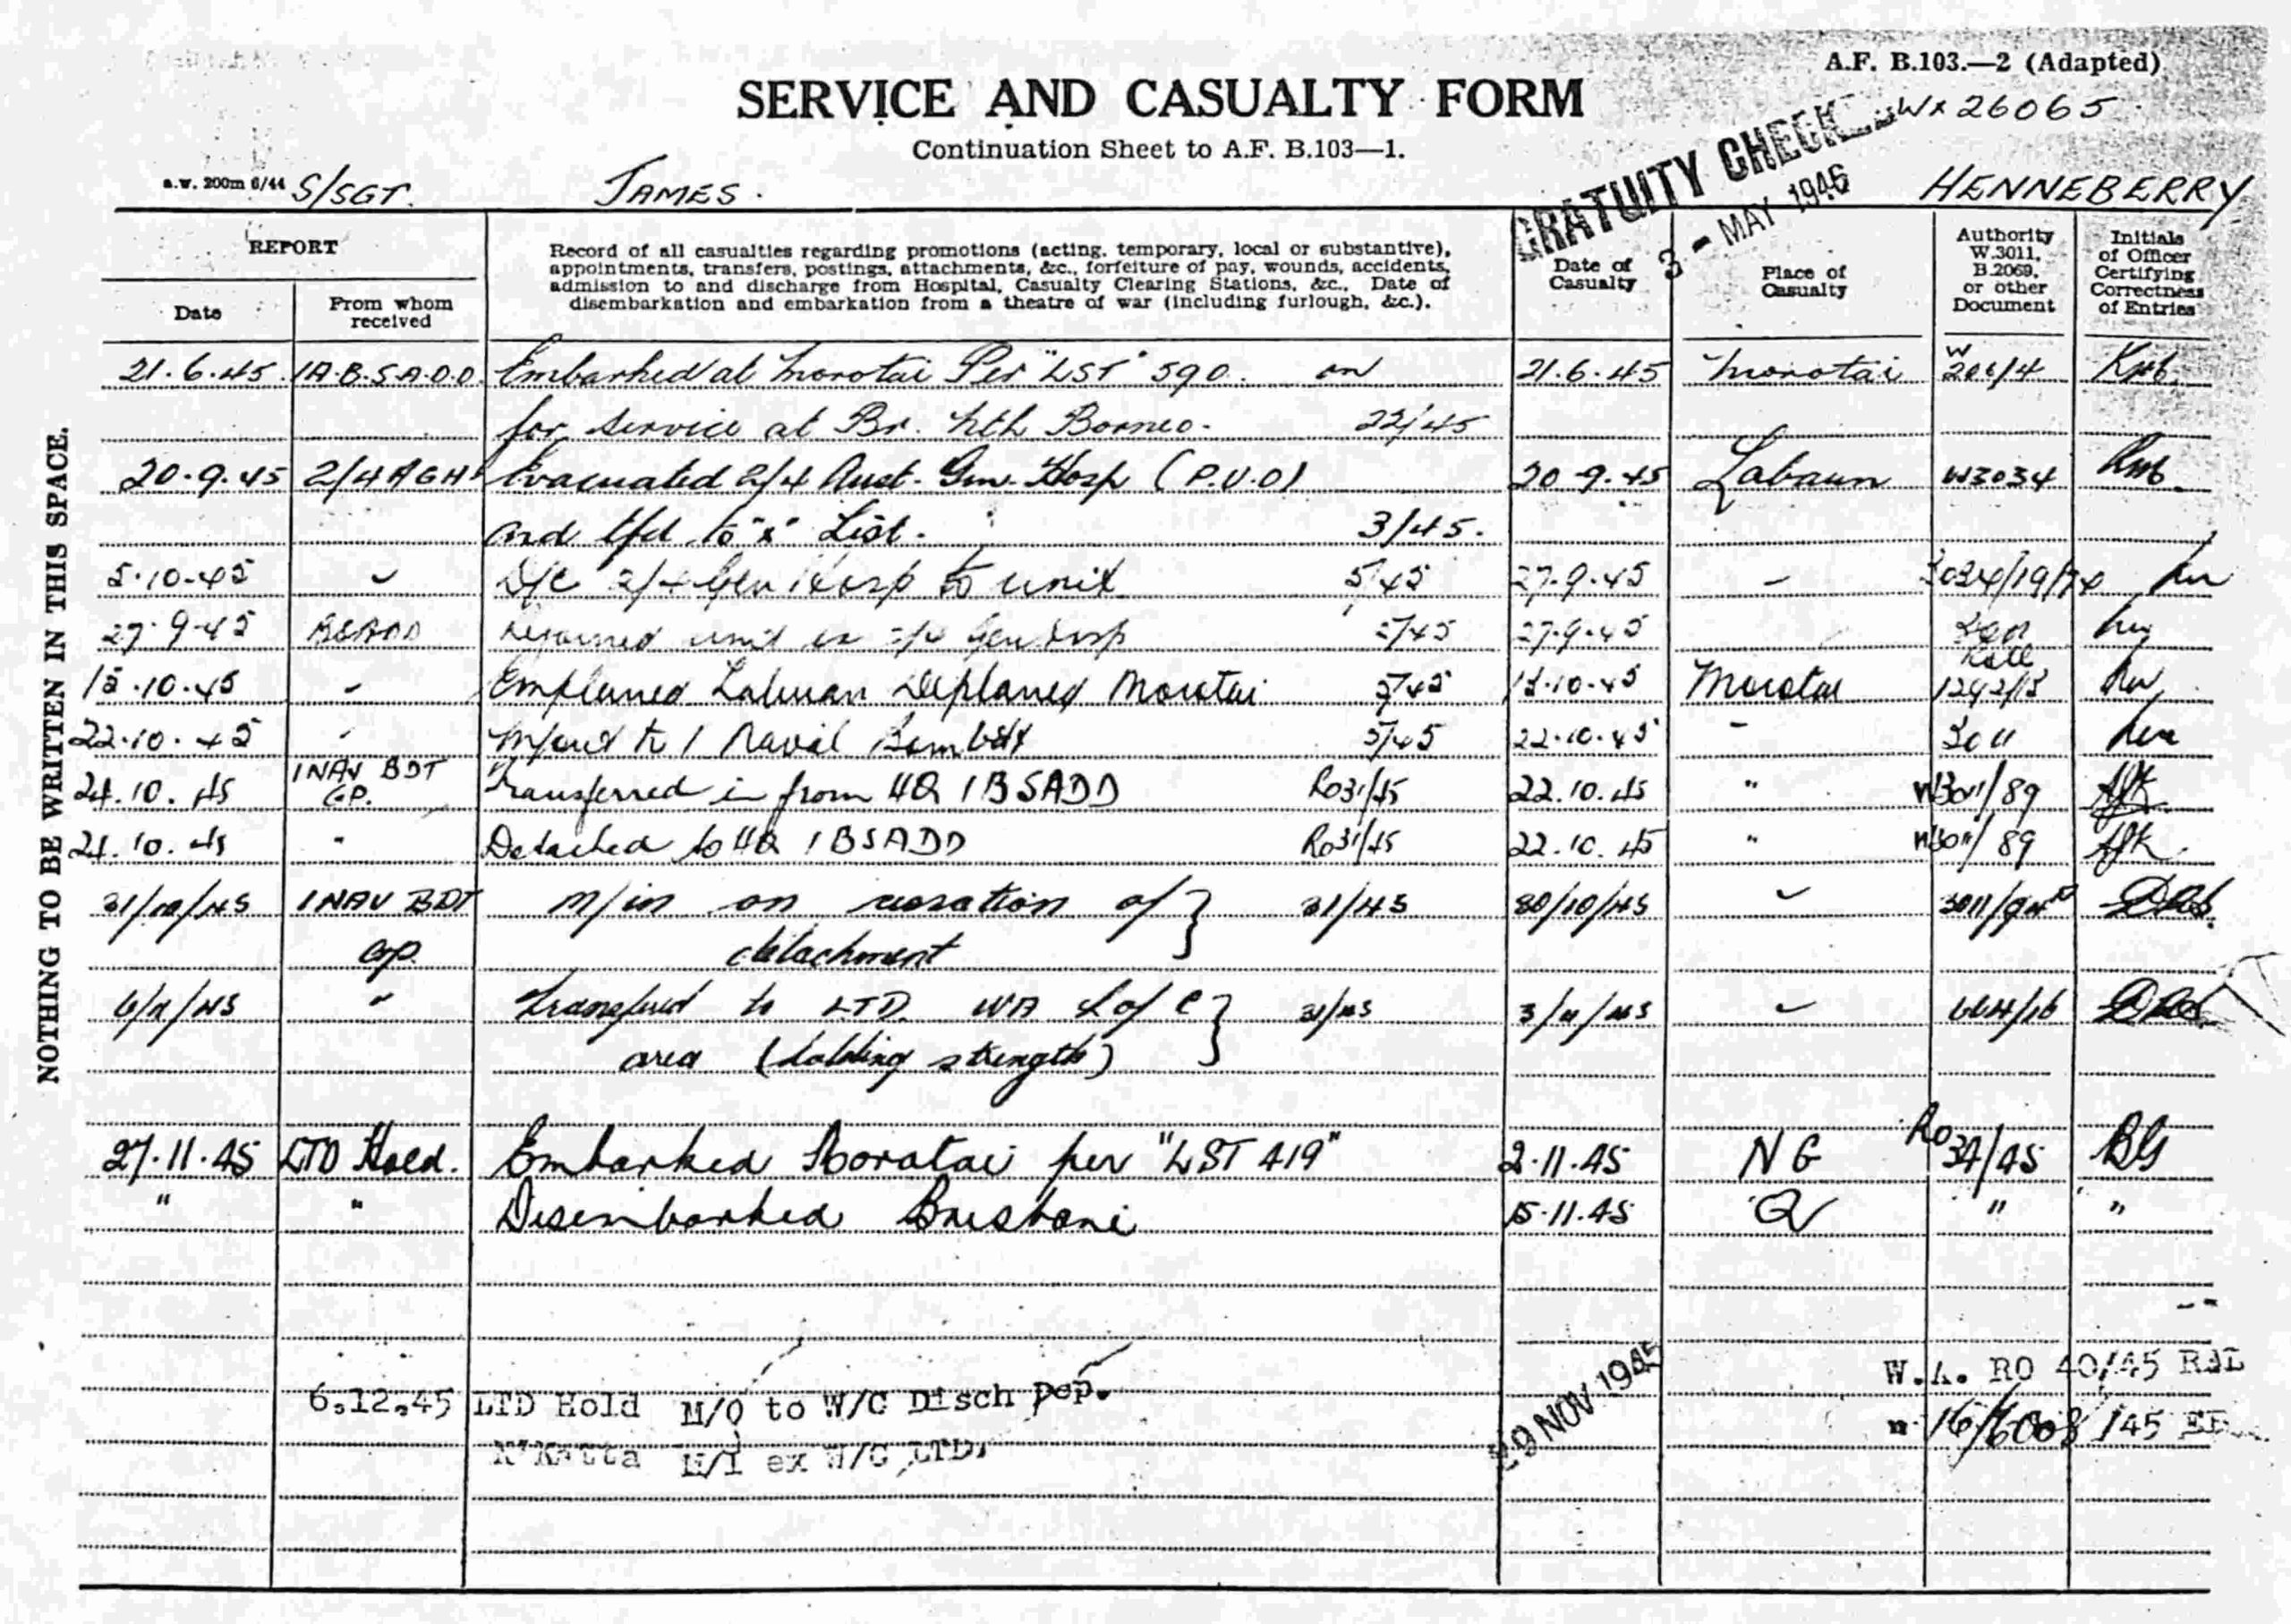 A.F. B.103.—2 (Adapted)
SERVICE AND CASUALTY FORM
WX 26065
Continuation Sheet to A.F. B.103—1.
GRATUITY CHECKED
3 - MAY 1946
a.w. 200m 6/44 S/SGT. JAMES. HENNEBERRY
REPORT
Date
From whom received
Record of all casualties regarding promotions (acting, temporary, local or substantive),
appointments, transfers, postings, attachments, &c., forfeiture of pay, wounds, accidents,
admission to and discharge from Hospital, Casualty Clearing Stations, &c., Date of
disembarkation and embarkation from a theatre of war (including furlough, &c.).
Date of Casualty
Place of Casualty
Authority W.3011, B.2069, or other Document
Initials of Officer Certifying Correctness of Entries
NOTHING TO BE WRITTEN IN THIS SPACE.
21.6.45 1A.B.S.A.O.D. Embarked at Morotai Per "LST" 590. on 21.6.45 Morotai
for service at Br. Nth Borneo. 22/45
20.9.45 2/4 AGH Evacuated 2/4 Aust. Gen. Hosp (P.U.O) 20.9.45 Labaun W3034
and tfd to "x" List. 3/45.
5.10.45 D/C 2/4 Gen Hosp to unit 5/45 27.9.45
27.9.45 Rejoined unit ex 2/4 Gen Hosp 5/45 27.9.45
15.10.45 Emplaned Labuan Deplaned Morotai 5/45 15.10.45 Morotai
22.10.45 to 1 Naval Bombdt 5/45 22.10.45 3011
24.10.45 1 NAV BDT GP. Transferred in from HQ 1 BSADD Ro31/45 22.10.45 " W3011/89
24.10.45 " Detached to HQ 1 BSADD Ro31/45 22.10.45 " W3011/89
31/10/45 1 NAV BDT M/in on cessation of } 31/45 30/10/45
GP. detachment
6/11/45 " Transferred to LTD WA L of C } 31/45 3/11/45 664/16
area (holding strength)
27.11.45 LTD Hold. Embarked Moratai per "LST 419" 2.11.45 NG Ro 34/45 BG
" " Disembarked Brisbane 15.11.45 Q " "
6.12.45 LTD Hold M/O to W/C Disch Dep. 29 NOV 1945 W.A. RO 40/45
K'Katta M/I ex W/C LTD. " 16/6008/45